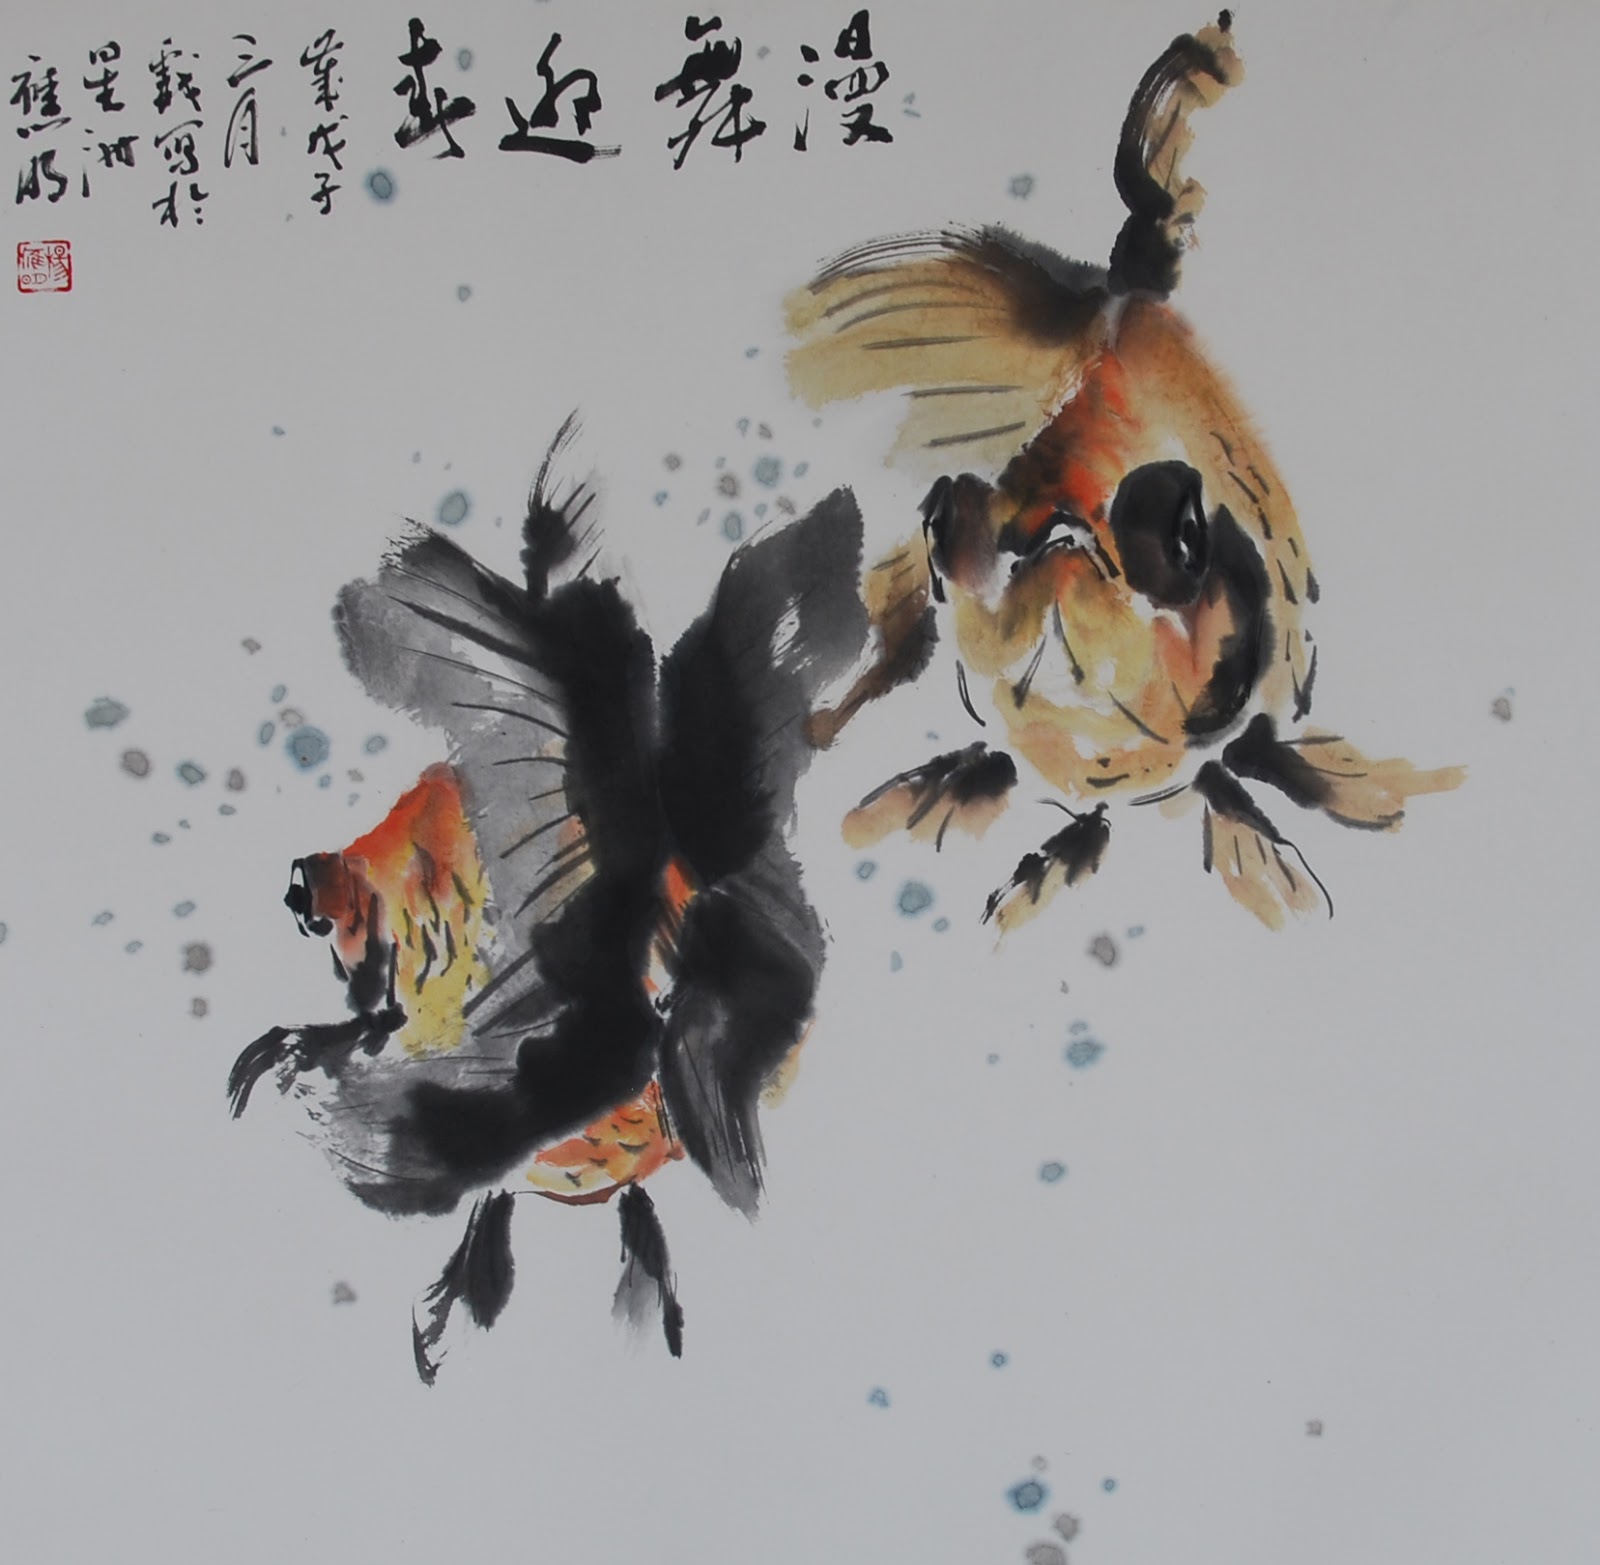 漫舞迎春
歲戊子
三月
戲寫於
星洲
應明
楊應明